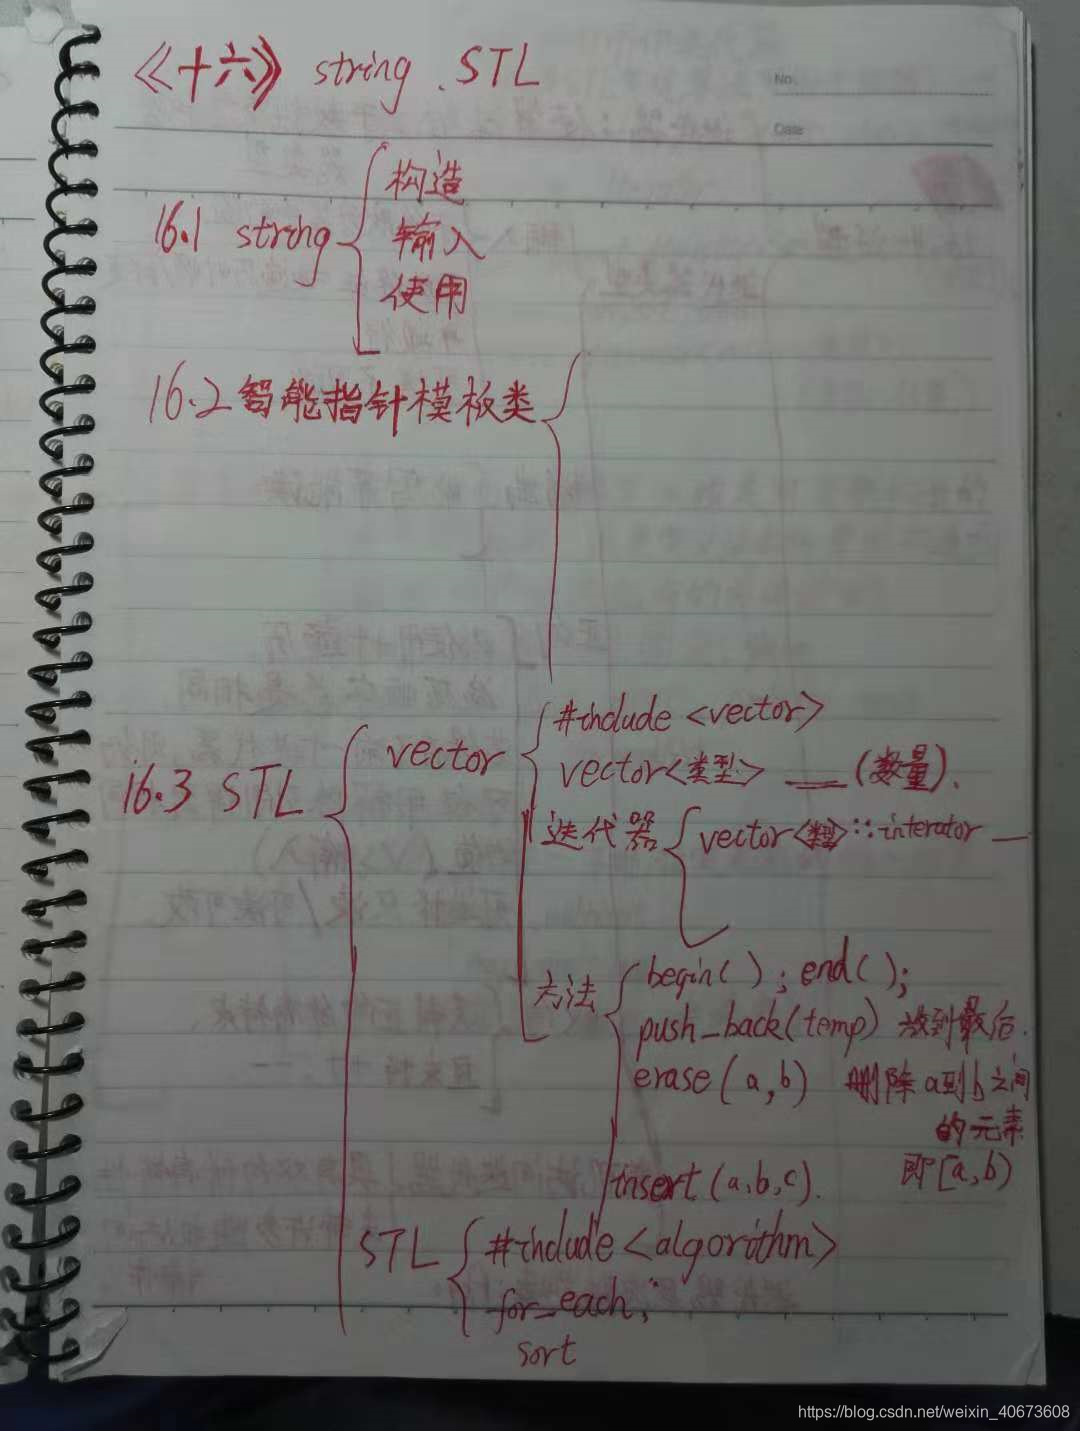 《十六》 string . STL
No.
Date
16.1 string
构造
输入
使用
16.2 智能指针模板类
16.3 STL
vector
#include <vector>
vector<类型> ___ (数量).
迭代器
vector<类型>::interator __
方法
begin() ; end();
push_back(temp) 放到最后.
erase (a,b) 删除a到b之间
的元素
即[a,b)
insert (a,b,c).
STL
#include <algorithm>
for_each;
sort
https://blog.csdn.net/weixin_40673608